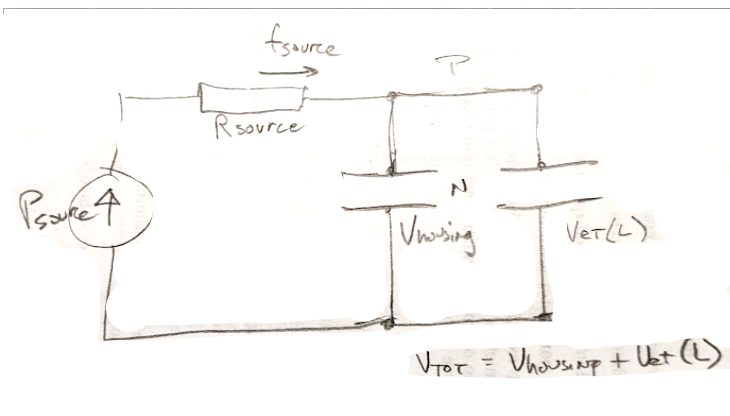 fsource
P
Rsource
Psource
N
Vhousing
VET(L)
VTOT = Vhousing + Vet(L)